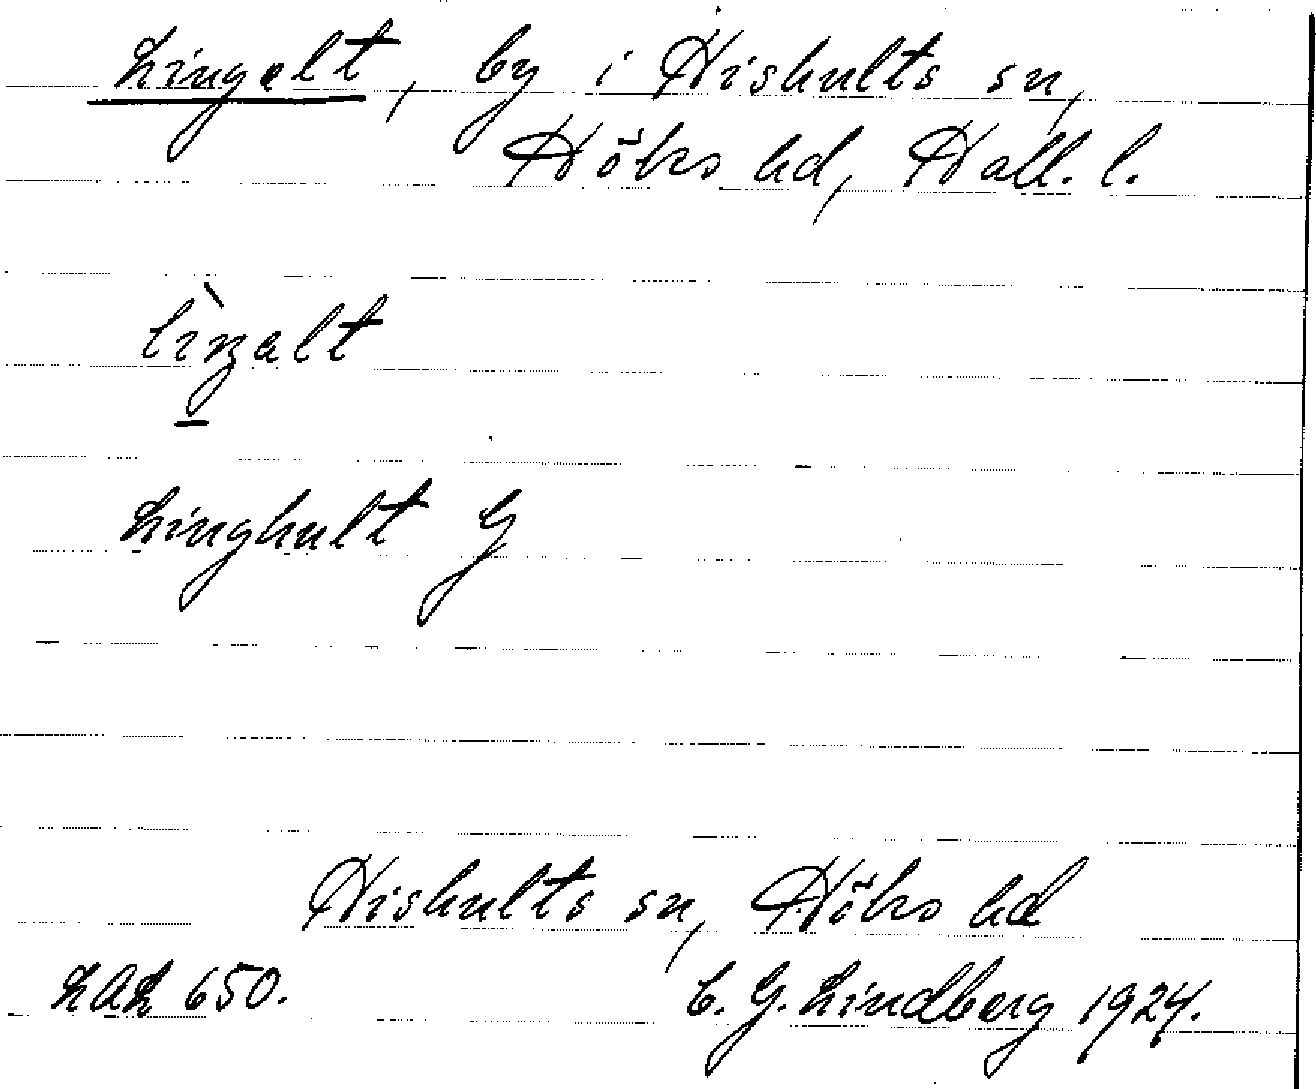 Lingalt, by i Hishults sn,
Höks hd, Hall. l.
lìŋalt
Linghult G
Hishults sn, Höks hd
LAL 650.
C. G. Lindberg 1924.